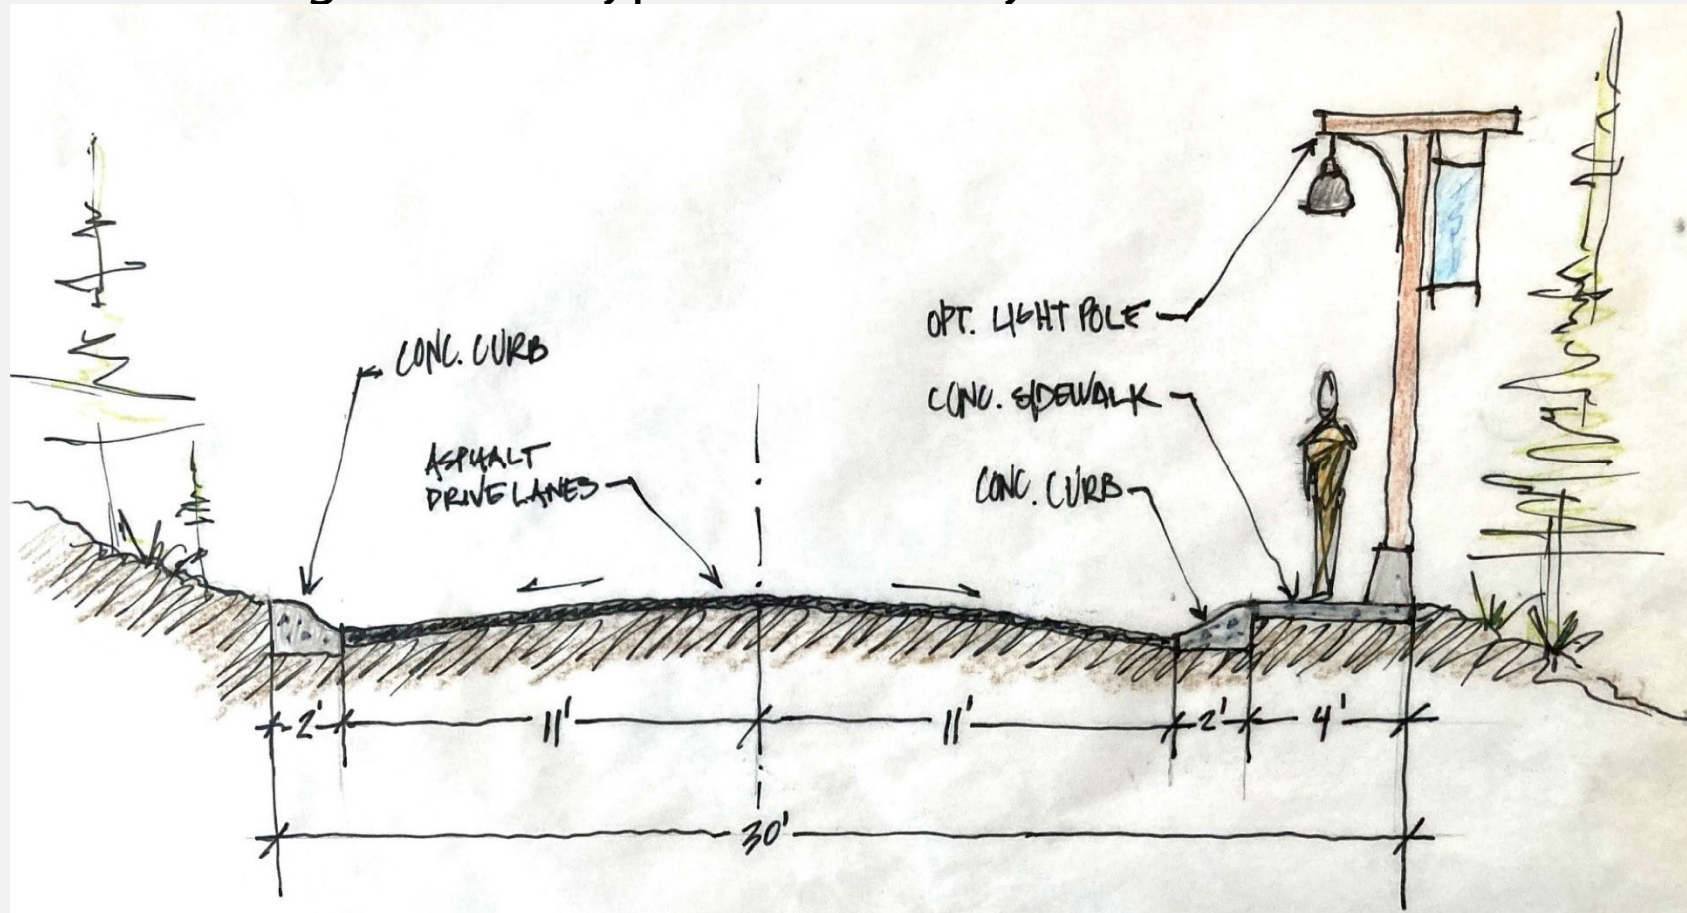 CONC. CURB
ASPHALT
DRIVE LANES
OPT. LIGHT POLE
CONC. SIDEWALK
CONC. CURB
2'
11'
11'
2'
4'
30'